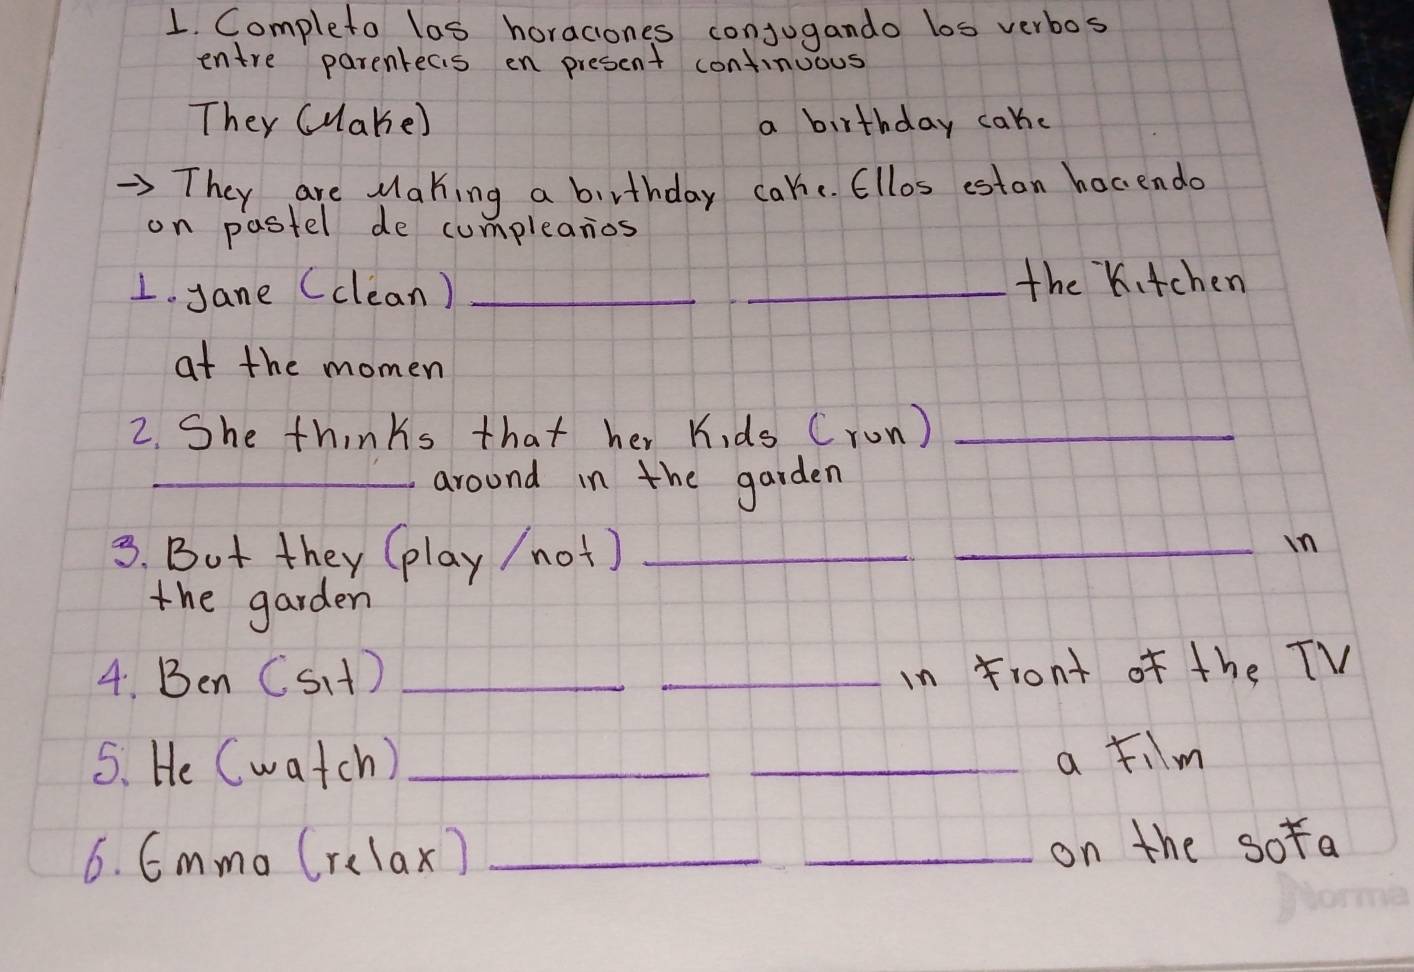 1. Completa las horaciones conjugando los verbos
entre parentecis en present continuous
They (Make) a birthday cake
→ They are Making a birthday cake. Ellos estan haciendo
un pastel de cumpleaños
1. Jane (clean) ________ ________ the Kitchen
at the momen
2. She thinks that her Kids (run) ________
________ around in the garden
3. But they (play/not) ________ ________ in
the garden
4. Ben (sit) ________ ________ in front of the TV
5. He (watch) ________ ________ a film
6. Emma (relax) ________ ________ on the sofa
Norma